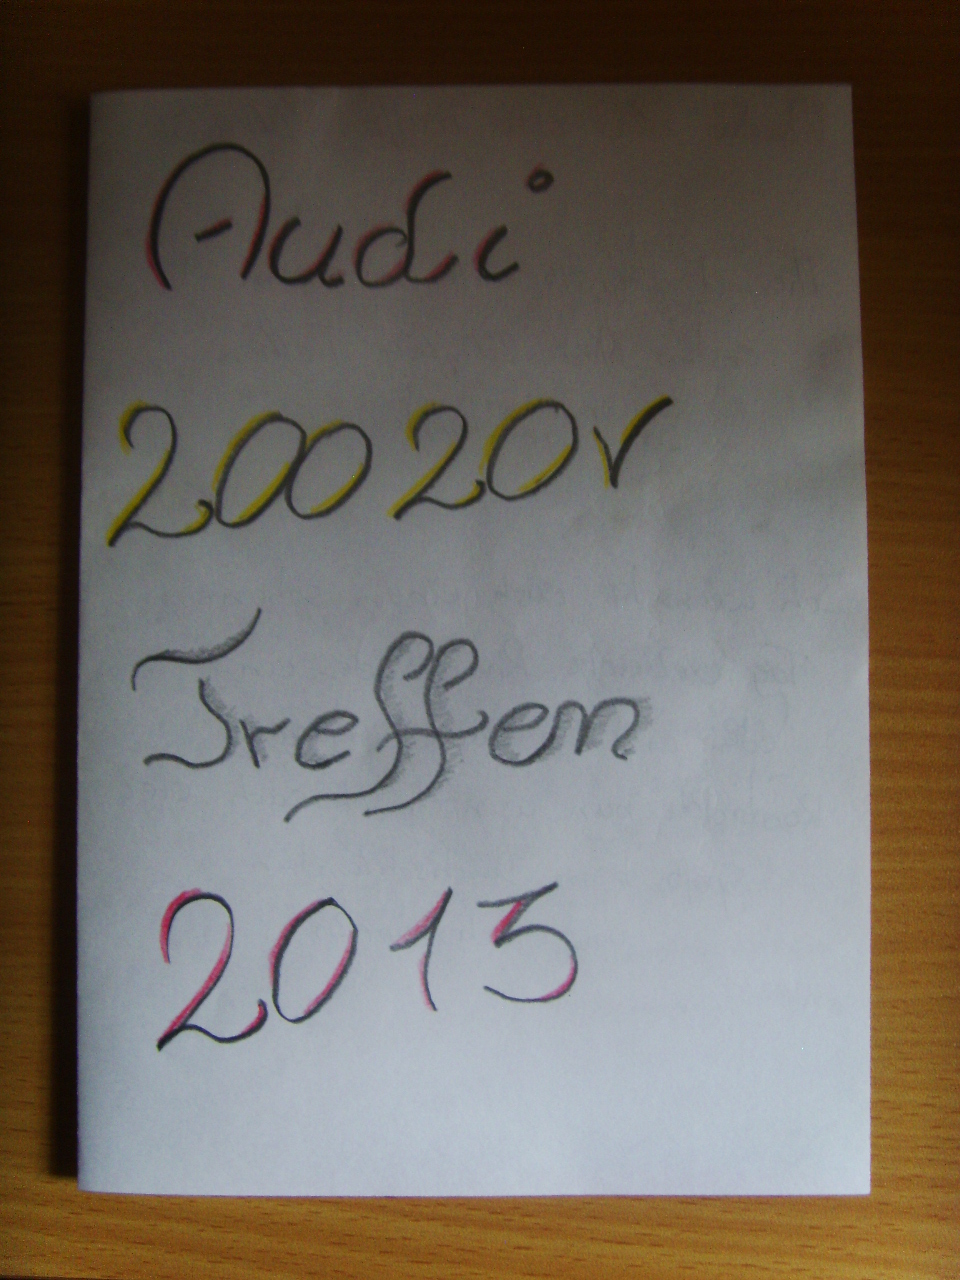 Audi
200 20v
Treffen
2013